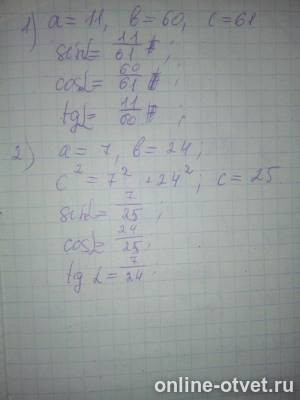 1) a = 11, b = 60, c = 61
sinL = 11/61 ;
cosL = 60/61 ;
tgL = 11/60 ;
2) a = 7, b = 24;
c² = 7² + 24²; c = 25
sinL = 7/25 ;
cosL = 24/25 ;
tg L = 7/24 ;
online-otvet.ru